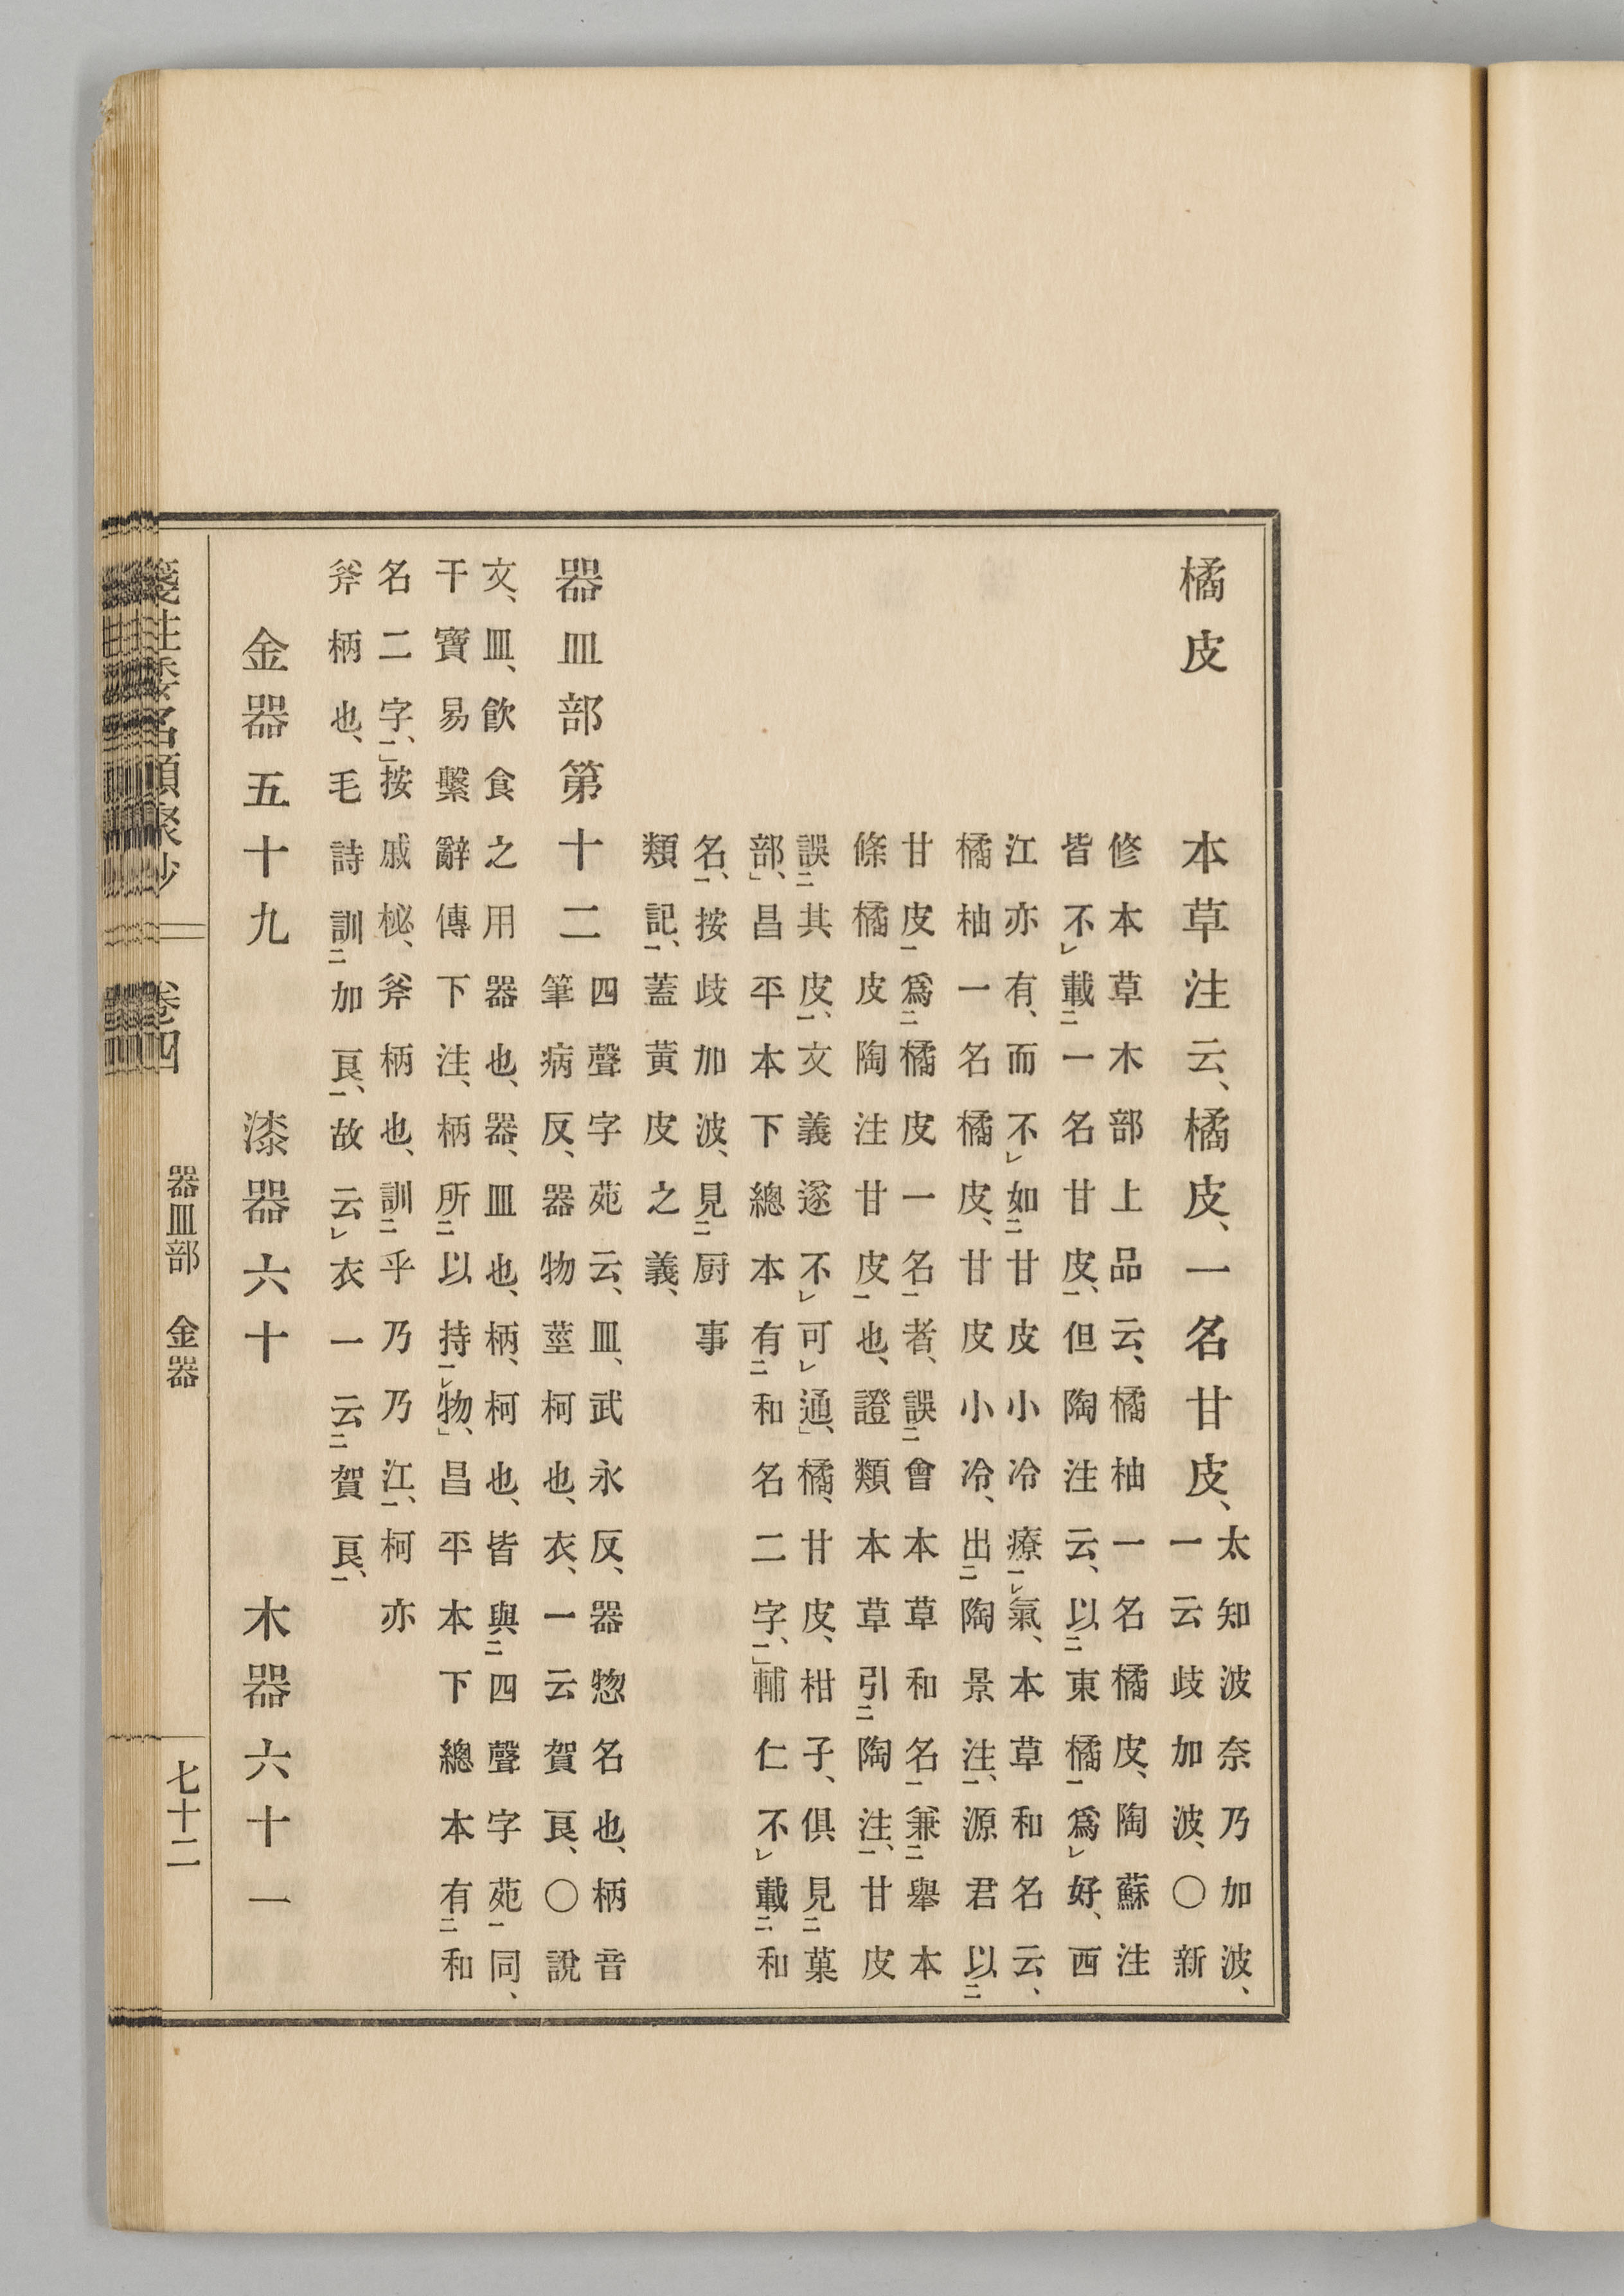 橘皮　本草注云、橘皮、一名甘皮、太知波奈乃加波、
一云歧加波、〇新
修本草木部上品云、橘柚一名橘皮、陶蘇注
皆不レ載二一名甘皮一、但陶注云、以二東橘一爲レ好、西
江亦有、而不レ如二甘皮小冷療一レ氣、本草和名云、
橘柚一名橘皮、甘皮小冷、出二陶景注一、源君以二
甘皮一爲二橘皮一名一者、誤二會本草和名一兼二舉本
條橘皮陶注甘皮一也、證類本草引二陶注一、甘皮
誤二其皮一、文義遂不レ可レ通、」橘、甘皮、柑子、俱見二菓
部、」昌平本下總本有二和名二字一、」輔仁不レ載二和
名一、按歧加波、見二厨事
類記一、蓋黃皮之義、
器皿部第十二　四聲字苑云、皿、武永反、器惣名也、柄音
筆病反、器物莖柯也、衣、一云賀良、〇說
文、皿、飮食之用器也、器、皿也、柄、柯也、皆與二四聲字苑一同、
干寶易繫辭傳下注、柄所二以持一レ物、」昌平本下總本有二和
名二字一、」按戚柲、斧柄也、訓二乎乃乃江一、柯亦
斧柄也、毛詩訓二加良一、故云レ衣一云二賀良一、
金器五十九　漆器六十　木器六十一
箋注倭名類聚抄　卷四　器皿部　金器　七十二